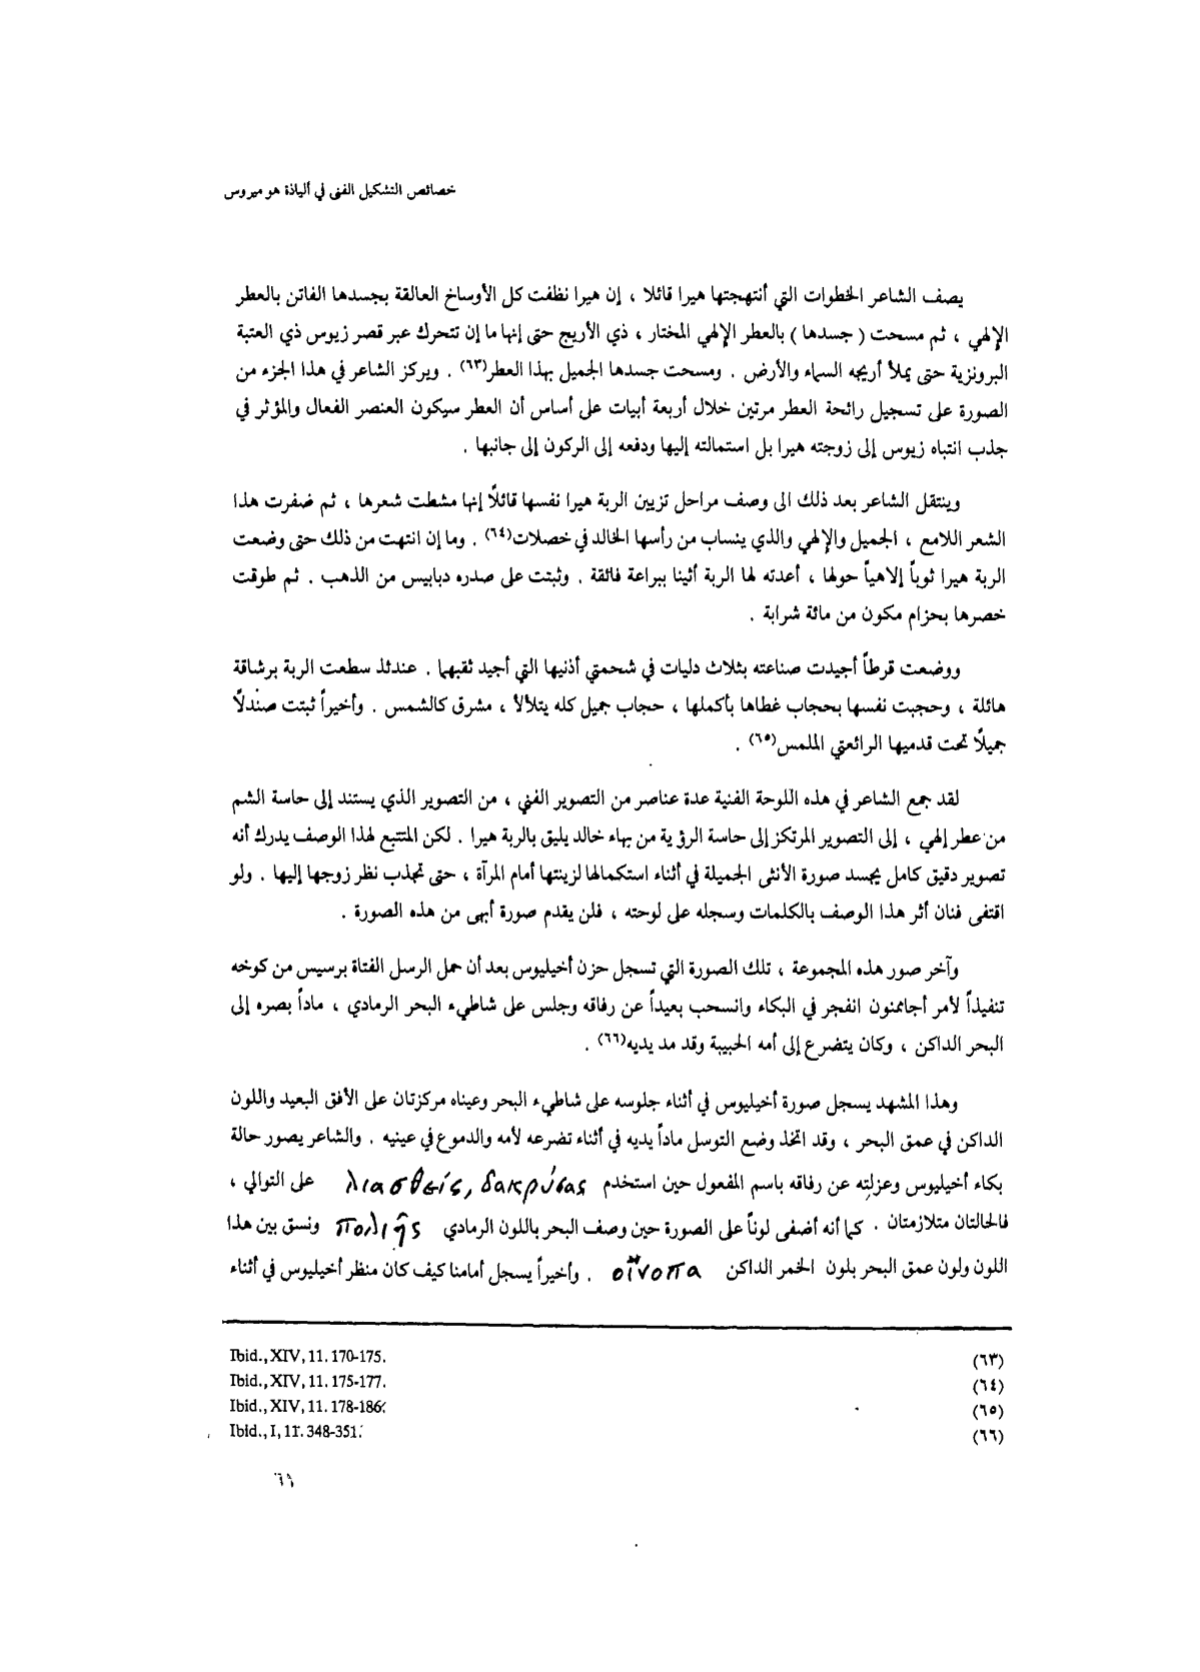 خصائص التشكيل الفنى في ألياذة هوميروس
يصف الشاعر الخطوات التي أنتهجتها هيرا قائلا ، إن هيرا نظفت كل الأوساخ العالقة بجسدها الفاتن بالعطر
الإلهي ، ثم مسحت ( جسدها ) بالعطر الإلهي المختار ، ذي الأريج حتى إنها ما إن تتحرك عبر قصر زيوس ذي العتبة
البرونزية حتى يملأ أريجه السماء والأرض . ومسحت جسدها الجميل بهذا العطر(٦٣) . ويركز الشاعر في هذا الجزء من
الصورة على تسجيل رائحة العطر مرتين خلال أربعة أبيات على أساس أن العطر سيكون العنصر الفعال والمؤثر في
جذب انتباه زيوس إلى زوجته هيرا بل استمالته إليها ودفعه إلى الركون إلى جانبها .
وينتقل الشاعر بعد ذلك الى وصف مراحل تزيين الربة هيرا نفسها قائلًا إنها مشطت شعرها ، ثم ضفرت هذا
الشعر اللامع ، الجميل والإلهي والذي ينساب من رأسها الخالد في خصلات(٦٤) . وما إن انتهت من ذلك حتى وضعت
الربة هيرا ثوباً إلاهياً حولها ، أعدته لها الربة أثينا ببراعة فائقة . وثبتت على صدره دبابيس من الذهب . ثم طوقت
خصرها بحزام مكون من مائة شرابة .
ووضعت قرطاً أجيدت صناعته بثلاث دليات في شحمتي أذنيها التي أجيد ثقبهما . عندئذ سطعت الربة برشاقة
هائلة ، وحجبت نفسها بحجاب غطاها بأكملها ، حجاب جميل كله يتلألأ ، مشرق كالشمس . وأخيراً ثبتت صندلًا
جميلًا تحت قدميها الرائعتي الملمس(٦٥) .
لقد جمع الشاعر في هذه اللوحة الفنية عدة عناصر من التصوير الفني ، من التصوير الذي يستند إلى حاسة الشم
من عطر إلهي ، إلى التصوير المرتكز إلى حاسة الرؤية من بهاء خالد يليق بالربة هيرا . لكن المتتبع لهذا الوصف يدرك أنه
تصوير دقيق كامل يجسد صورة الأنثى الجميلة في أثناء استكمالها لزينتها أمام المرآة ، حتى تجذب نظر زوجها إليها . ولو
اقتفى فنان أثر هذا الوصف بالكلمات وسجله على لوحته ، فلن يقدم صورة أبهى من هذه الصورة .
وآخر صور هذه المجموعة ، تلك الصورة التي تسجل حزن أخيليوس بعد أن حمل الرسل الفتاة برسيس من كوخه
تنفيذاً لأمر أجاممنون انفجر في البكاء وانسحب بعيداً عن رفاقه وجلس على شاطيء البحر الرمادي ، ماداً بصره إلى
البحر الداكن ، وكان يتضرع إلى أمه الحبيبة وقد مد يديه(٦٦) .
وهذا المشهد يسجل صورة أخيليوس في أثناء جلوسه على شاطيء البحر وعيناه مركزتان على الأفق البعيد واللون
الداكن في عمق البحر ، وقد اتخذ وضع التوسل ماداً يديه في أثناء تضرعه لأمه والدموع في عينيه . والشاعر يصور حالة
بكاء أخيليوس وعزلته عن رفاقه باسم المفعول حين استخدم λιασθείς, δακρύσας على التوالي ،
فالحالتان متلازمتان . كما أنه أضفى لوناً على الصورة حين وصف البحر باللون الرمادي πολιῆς ونسق بين هذا
اللون ولون عمق البحر بلون الخمر الداكن οἴνοπα . وأخيراً يسجل أمامنا كيف كان منظر أخيليوس في أثناء
Ibid., XIV, 11. 170-175. (٦٣)
Ibid., XIV, 11. 175-177. (٦٤)
Ibid., XIV, 11. 178-186. (٦٥)
Ibid., I, 11. 348-351. (٦٦)